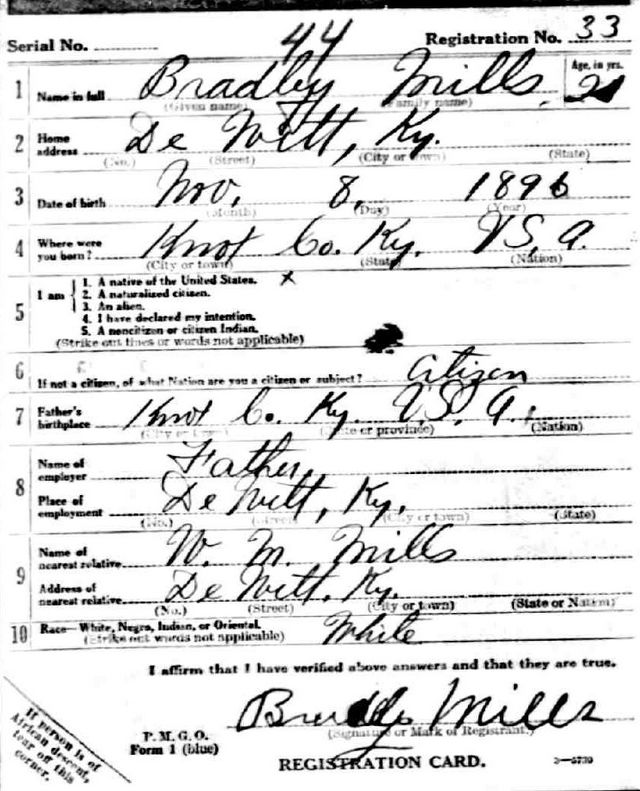 Serial No. 44 Registration No. 33
1 Name in full Bradley Mills Age, in yrs. 21
(Given name) (Family name)
2 Home address De Witt, Ky.
(No.) (Street) (City or town) (State)
3 Date of birth Nov. 8, 1896
(Month) (Day) (Year)
4 Where were you born? Knot Co. Ky. U.S.A.
(City or town) (State) (Nation)
5 I am
1. A native of the United States. x
2. A naturalized citizen.
3. An alien.
4. I have declared my intention.
5. A noncitizen or citizen Indian.
(Strike out lines or words not applicable)
6 If not a citizen, of what Nation are you a citizen or subject? Citizen
7 Father's birthplace Knot Co. Ky. U.S.A.
(City or town) (State or province) (Nation)
8 Name of employer Father
Place of employment De Witt, Ky.
(No.) (Street) (City or town) (State)
9 Name of nearest relative W. M. Mills
Address of nearest relative De Witt, Ky.
(No.) (Street) (City or town) (State or Nation)
10 Race—White, Negro, Indian, or Oriental. White
(Strike out words not applicable)
I affirm that I have verified above answers and that they are true.
Bradley Mills
(Signature or Mark of Registrant.)
P. M. G. O.
Form 1 (blue)
REGISTRATION CARD. 3—5739
If person is of
African descent,
tear off this
corner.